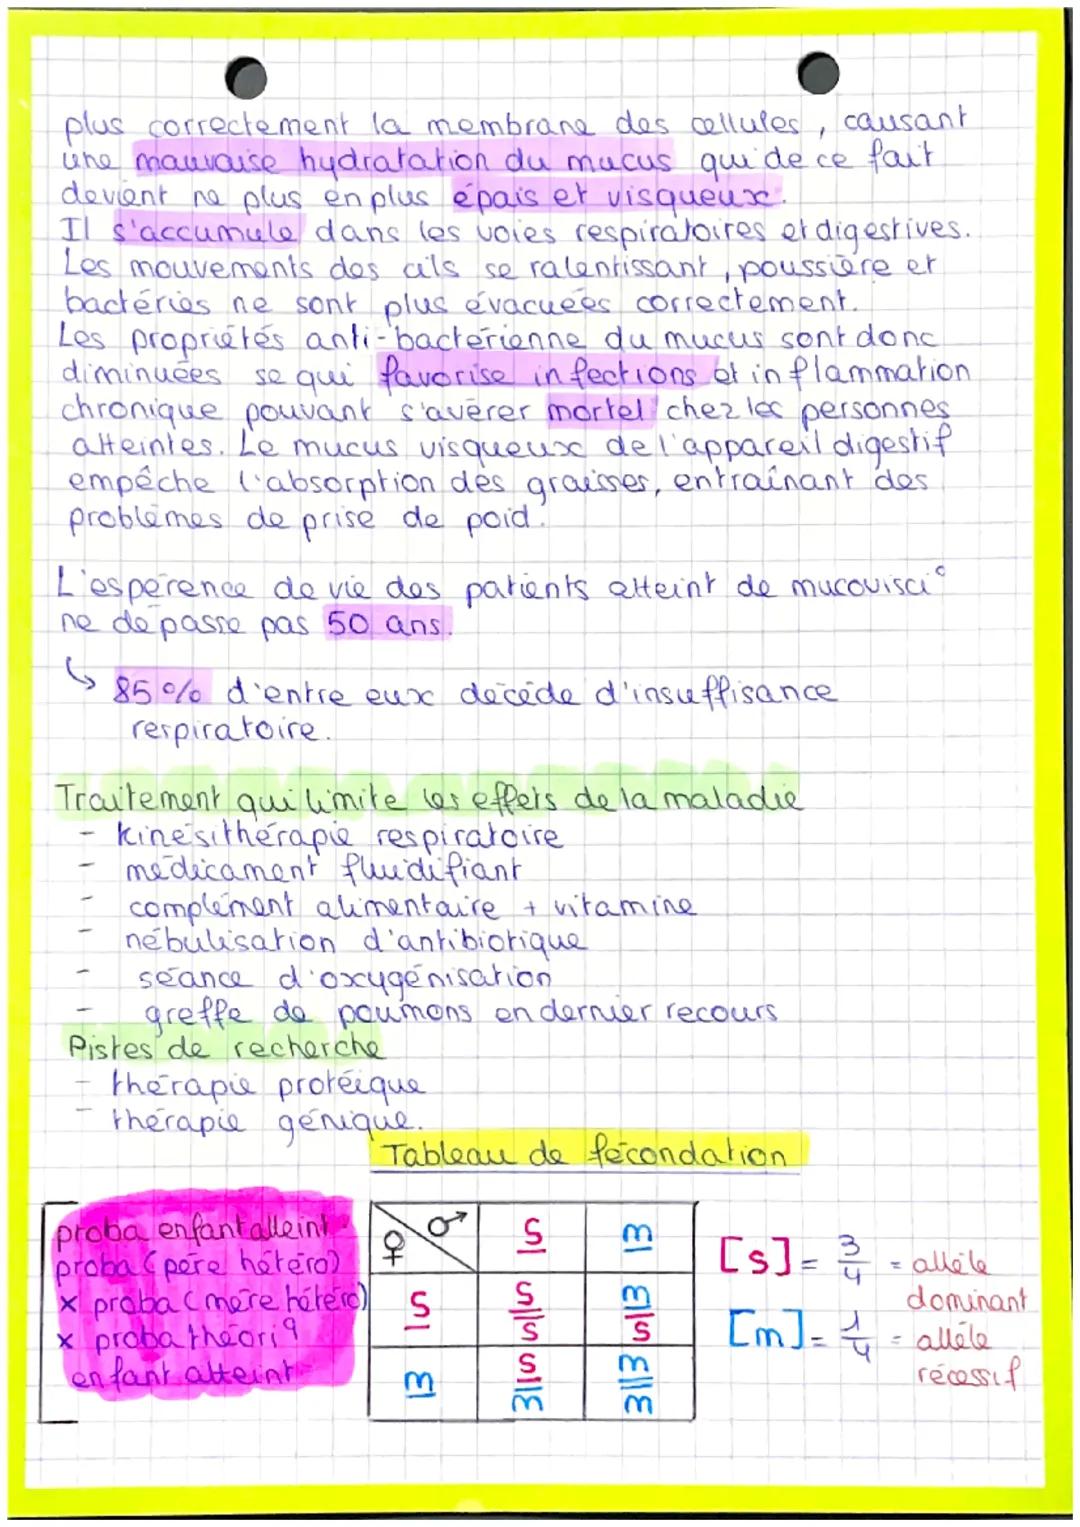 plus correctement la membrane des cellules, causant
une mauvaise hydratation du mucus qui de ce fait
devient ne plus en plus épais et visqueux.
Il s'accumule dans les voies respiratoires et digestives.
Les mouvements des cils se ralentissant, poussière et
bactéries ne sont plus évacuées correctement.
Les propriétés anti-bactérienne du mucus sont donc
diminuées se qui favorise infections et inflammation
chronique pouvant s'avérer mortel chez les personnes
atteintes. Le mucus visqueux de l'appareil digestif
empêche l'absorption des graisses, entraînant des
problèmes de prise de poid.
L'espérence de vie des patients atteint de mucovisci°
ne dépasse pas 50 ans.
↳ 85% d'entre eux décède d'insuffisance
respiratoire.
Traitement qui limite les effets de la maladie
- kinésithérapie respiratoire
- médicament fluidifiant
- complément alimentaire + vitamine
- nébulisation d'antibiotique
- séance d'oxygénisation
- greffe de poumons en dernier recours
Pistes de recherche
- thérapie protéique
- thérapie génique.
Tableau de fécondation
proba enfant atteint
proba (père hétéro)
x proba (mère hétéro)
x proba théoriq
enfant atteint
♀ ♂ S m
S S/S m/S
m S/m m/m
[S] = 3/4 = allèle
dominant
[m] = 1/4 = allèle
récessif